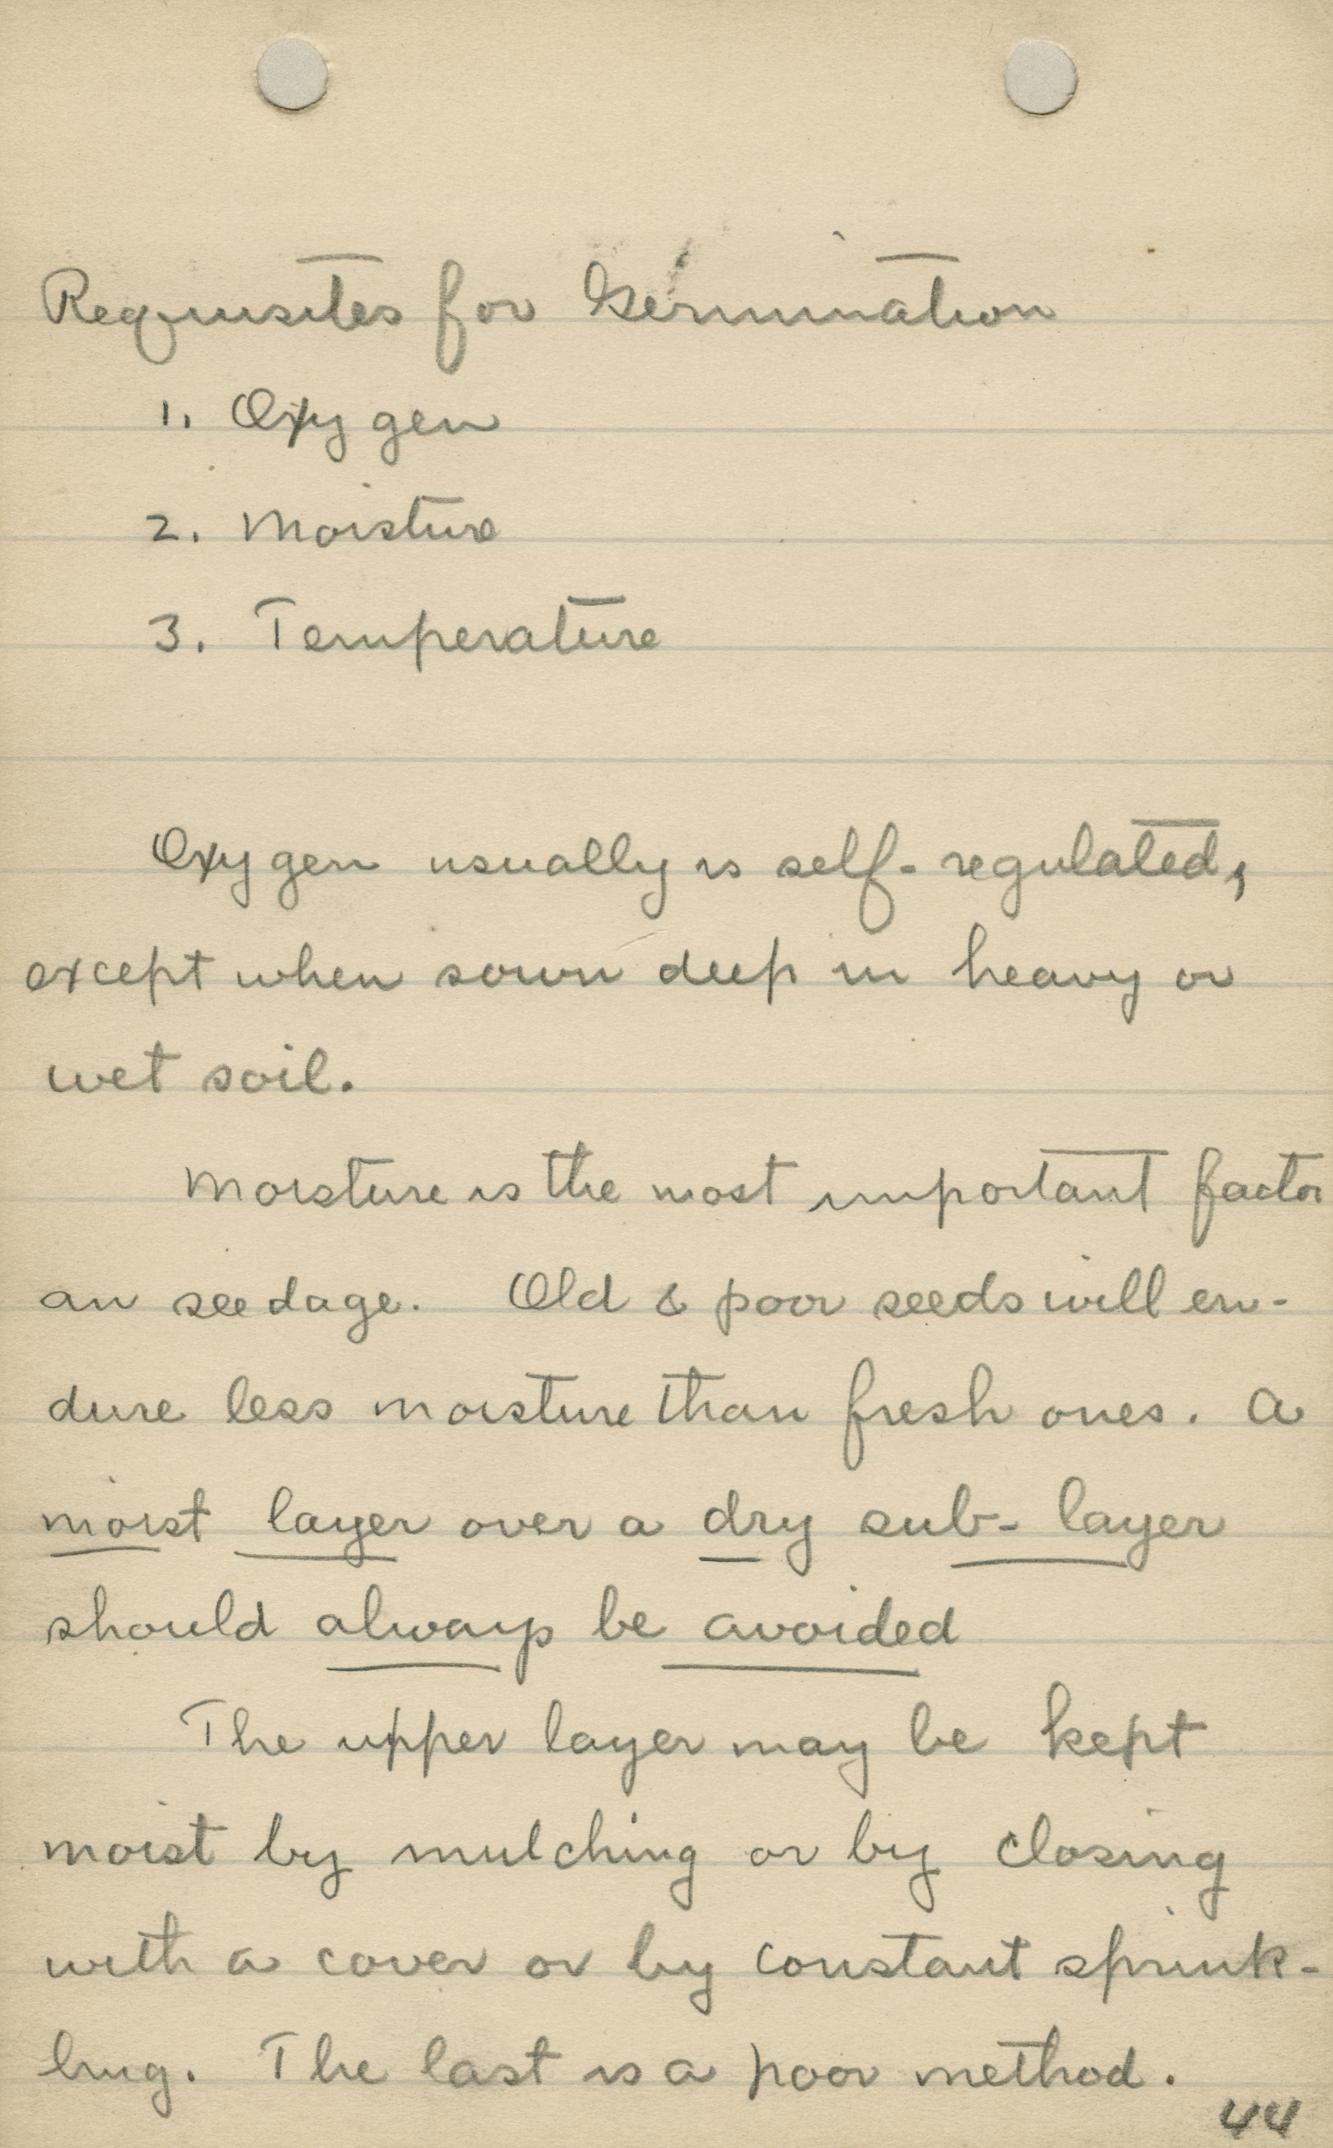 Requisites for Germination
1. Oxygen
2. Moisture
3. Temperature
Oxygen usually is self-regulated,
except when sown deep in heavy or
wet soil.
Moisture is the most important factor
an seedage. Old & poor seeds will en-
dure less moisture than fresh ones. A
moist layer over a dry sub-layer
should always be avoided
The upper layer may be kept
moist by mulching or by closing
with a cover or by constant sprink-
ling. The last is a poor method.
44